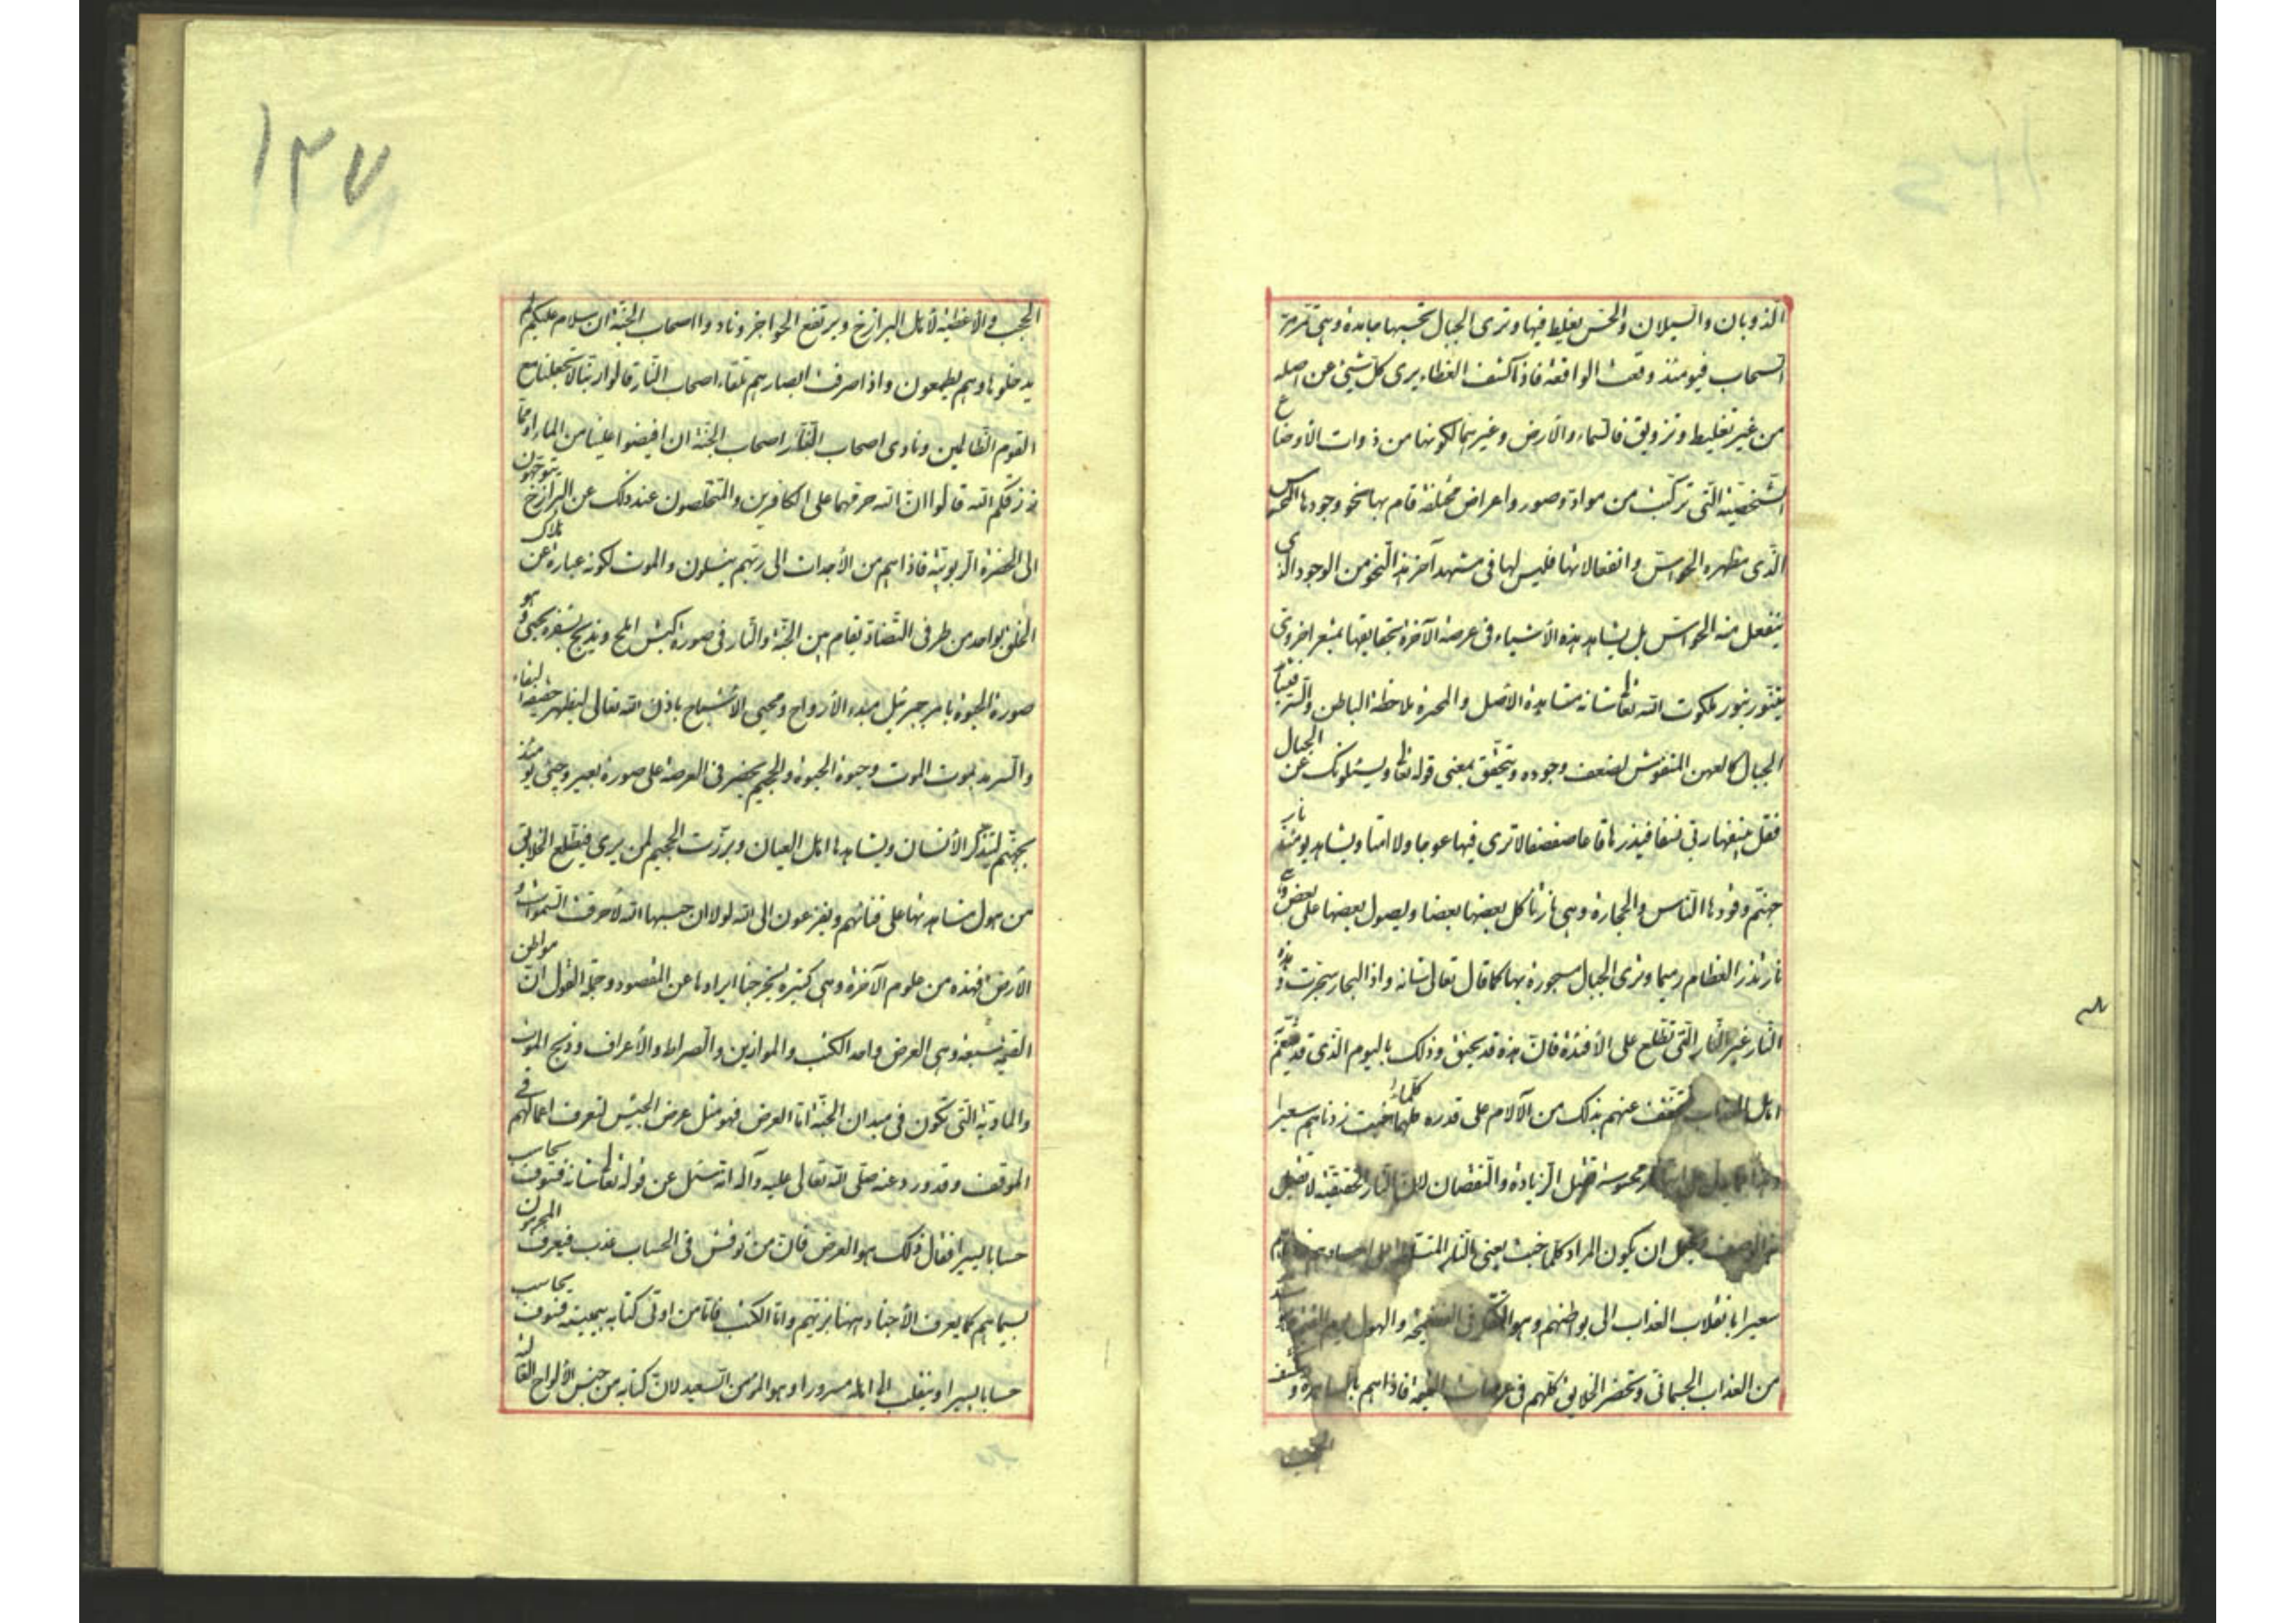 الذوبان والسيلان والحس يغلط فيها وترى الجبال تحسبها جامدة وهي تمر مر
السحاب فيومئذ وقعت الواقعة فاذا كشف الغطاء يرى كل شيئ عن اصله
من غير تغليط وتزويق فالسماء والارض وغيرهما لكونها من ذوات الأوضاع
الشخصية التي تركبت من مواد وصور واعراض مختلفة قام بها نحو وجودها المحسوس
الذي مظهره الحواس وانفعالاتها فليس لها في مشهد آخر هذا النحو من الوجود الذي
ينفعل منه الحواس بل يشاهد هذه الأشياء في عرصة الآخرة بحقايقها بمشعر اخروي
يتنور بنور ملكوت الله تعا شانه مشاهدة الأصل والمخبرة ملاحظة الباطن والسر فيشاهد
الجبال كالعهن المنفوش لضعف وجوده ويتحقق بمعنى قوله تعا ويسئلونك عن الجبال
فقل ينسفها ربي نسفا فيذرها قاعا صفصفا لا ترى فيها عوجا ولا امتا ويشاهد يومئذ نار
جهنم وقودها الناس والحجارة وهي نار تأكل بعضها بعضا ويصول بعضها على بعض
نار تذر العظام رميما وترى الجبال مسجورة بها كما قال تعالى شانه واذا البحار سجرت وهذه
النار غير النار التي تطلع على الأفئدة فان هذه قد
اهل فتخفف عنهم بذلك من الآلام على قدره كلما خبت زدناهم سعيرا
محسوسة تقبل الزيادة والنقصان لان النار الحقيقية لا تقبل
هذا الوصف ان يكون المراد كلما خبت يعني النار المتسلطة
سعيرا بانقلاب العذاب الى بواطنهم وهو التفكر في الفضيحة والهول
من العذاب الجسماني وتحضر الخلايق كلهم في عرصات القيمة فاذا هم بالساهرة و
الحجب والأغطية لأهل البرازخ ويرتفع الحواجز ونادوا اصحاب الجنة ان سلام عليكم لم
يدخلوها وهم يطمعون واذا صرفت ابصارهم تلقاء اصحاب النار قالوا ربنا لا تجعلنا مع
القوم الظالمين ونادى اصحاب النار اصحاب الجنة ان افيضوا علينا من الماء او مما
رزقكم الله قالوا ان الله حرمهما على الكافرين والمتخلصون عند ذلك عن البرازخ يتوجهون
الى الحضرة الربوبية فاذا هم من الأجداث الى ربهم ينسلون والموت لكونه عبارة عن هلاك
الخلق بواحد من طرفي التضاد يقام بين الجنة والنار في صورة كبش املح ويذبح بشفرة يحيى وهو
صورة الحيوة بامر جبرئيل مبدء الأرواح ومحيي الأشباح باذن الله تعالى ليظهر حقيقة البقاء
والسرمد بموت الموت وحيوة الحيوة والجحيم يحضر في العرصة على صورة بعير وجيئ يومئذ
بجهنم ليتذكر الأنسان ويشاهدها اهل العيان وبرزت الجحيم لمن يرى فيطلع الخلايق
من هول مشاهدتها على فنائهم ويفزعون الى الله لولا ان حبسها الله لأحرقت السموات و
الأرض فهذه من علوم الآخرة وهي كثيرة يخرجنا ايرادها عن المقصود وجملة القول ان مواطن
القيمة سبعة وهي العرض واخذ الكتب والموازين والصراط والأعراف وذبح الموت
والمأدبة التي تكون في ميدان الجنة اما العرض فهو مثل عرض الجيش لتعرف اعمالهم في
الموقف وقد ورد عنه صلى الله تعالى عليه وآله انه سئل عن قوله تعا شانه فسوف يحاسب
حسابا يسيرا فقال ذلك هو العرض فان من نوقش في الحساب عذب فيعرف المجرمون
بسيماهم كما يعرف الأجناد هنا بزيهم واما الكتب فاما من اوتي كتابه بيمينه فسوف يحاسب
حسابا يسيرا وينقلب الى اهله مسرورا وهو المؤمن السعيد لان كتابه من جنس الألواح
١٣٧